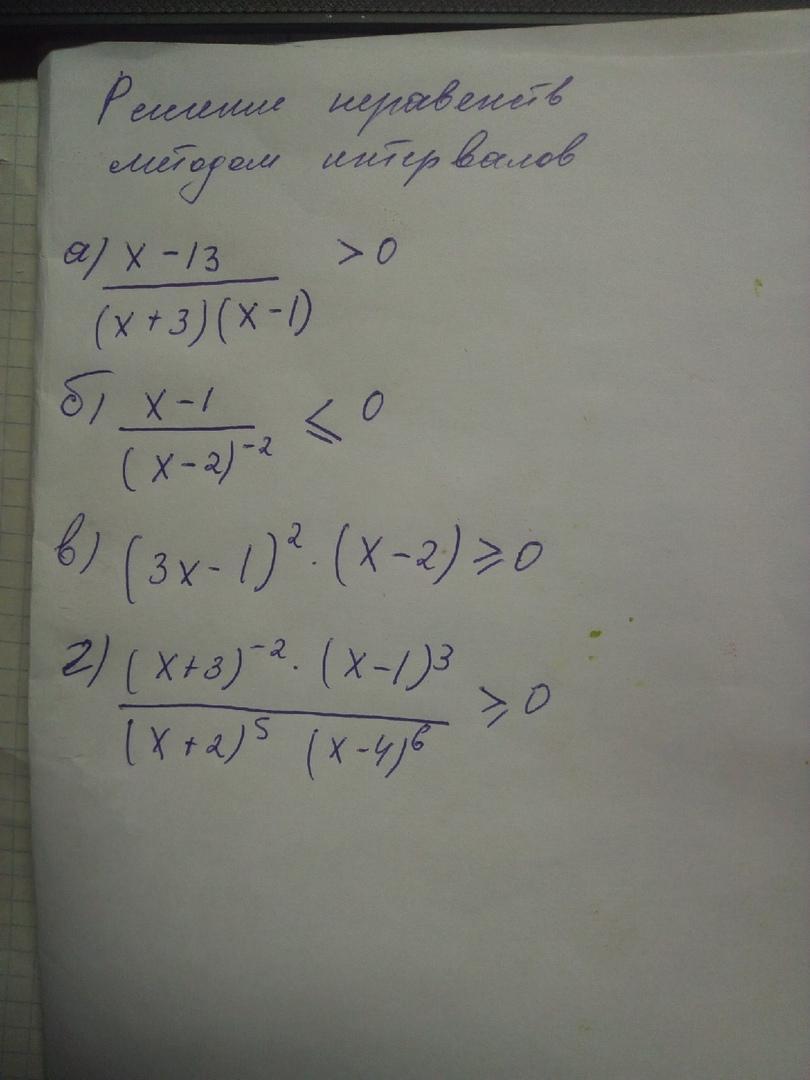 Решение неравенств
методом интервалов
а) x - 13 > 0
(x + 3)(x - 1)
б) x - 1 ⩽ 0
(x - 2)⁻²
в) (3x - 1)² · (x - 2) ⩾ 0
г) (x + 3)⁻² · (x - 1)³ ⩾ 0
(x + 2)⁵ (x - 4)⁶